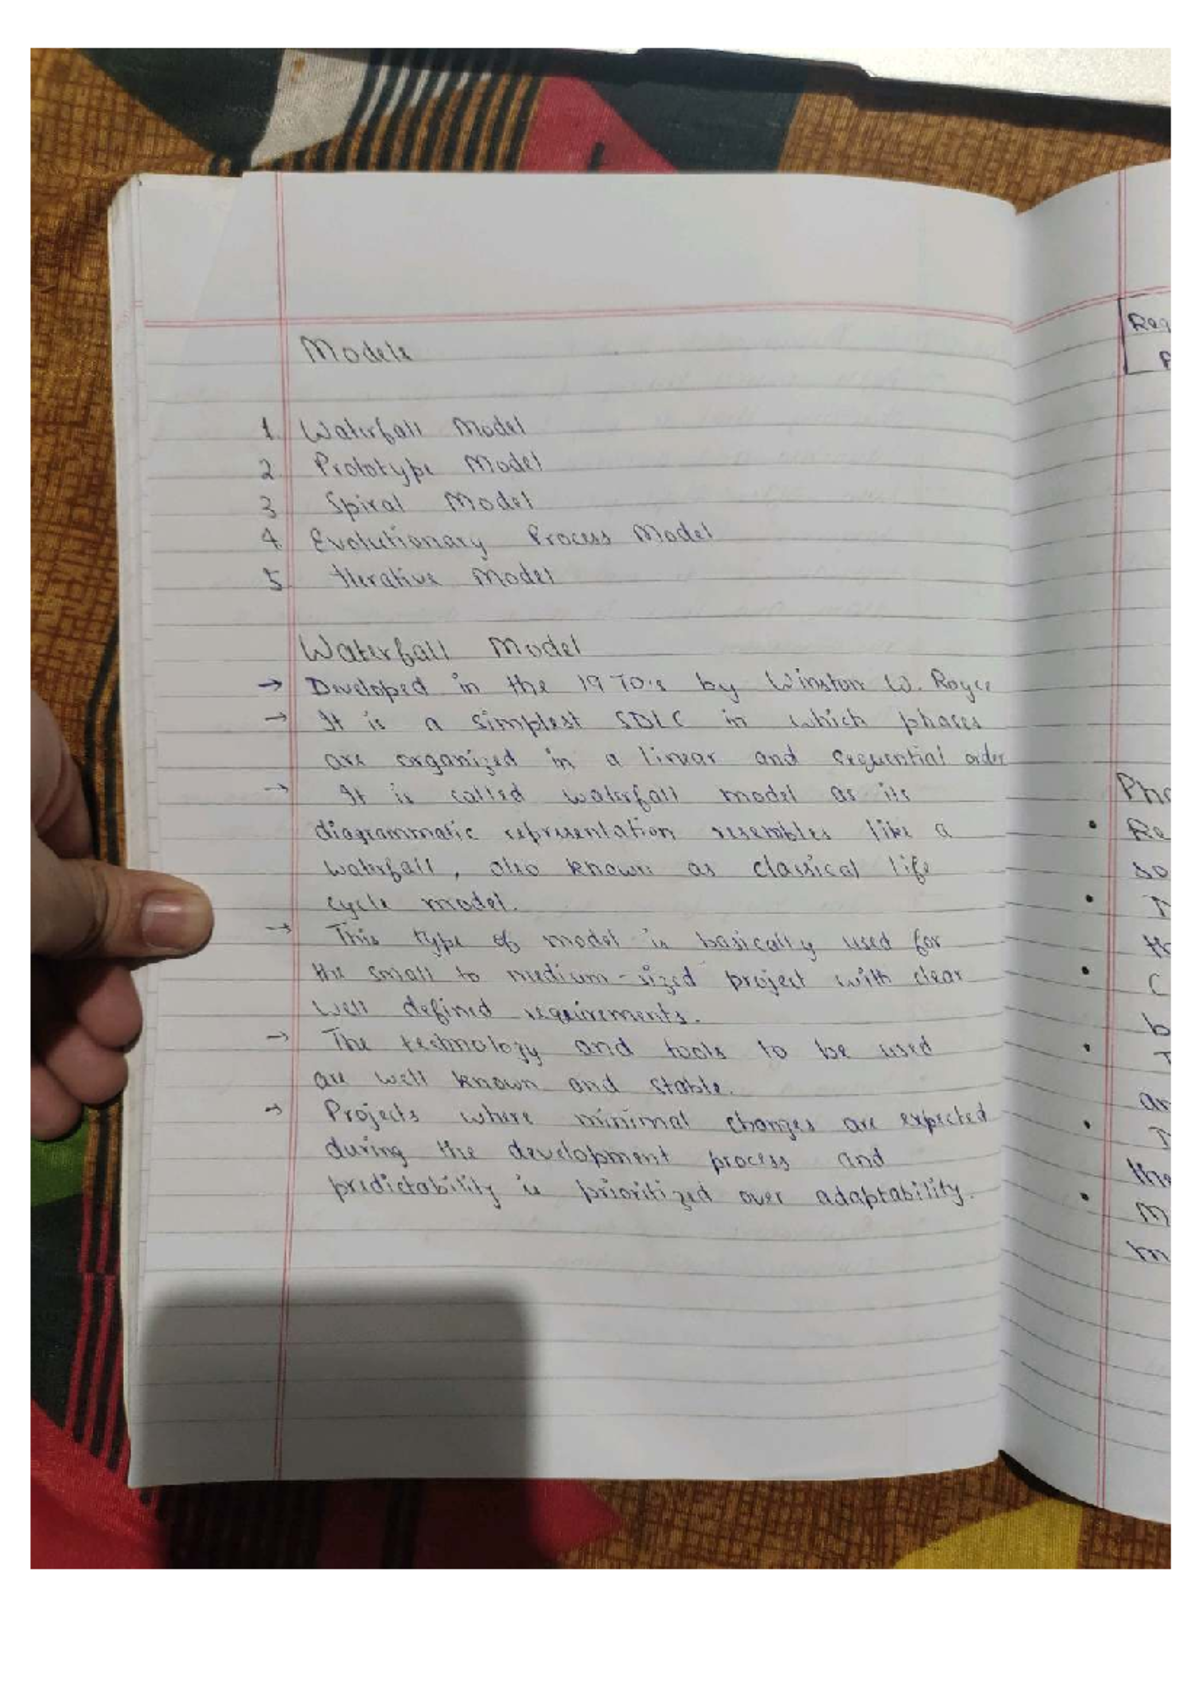 Models
1. Waterfall Model
2. Prototype Model
3 Spiral Model
4. Evolutionary Process Model
5. Iterative Model
Waterfall Model
→ Developed in the 1970's by Winston W. Royce
→ It is a simplest SDLC in which phases
are organized in a linear and sequential order
→ It is called waterfall model as its
diagrammatic representation resembles like a
waterfall, also known as classical life
cycle model.
→ This type of model is basically used for
the small to medium-sized project with clear
well defined requirements.
→ The technology and tools to be used
are well known and stable.
→ Projects where minimal changes are expected
during the development process and
predictability is prioritized over adaptability.
Req
P
Pha
• Re
so
• T
th
• C
b
• T
an
• T
the
• M
m